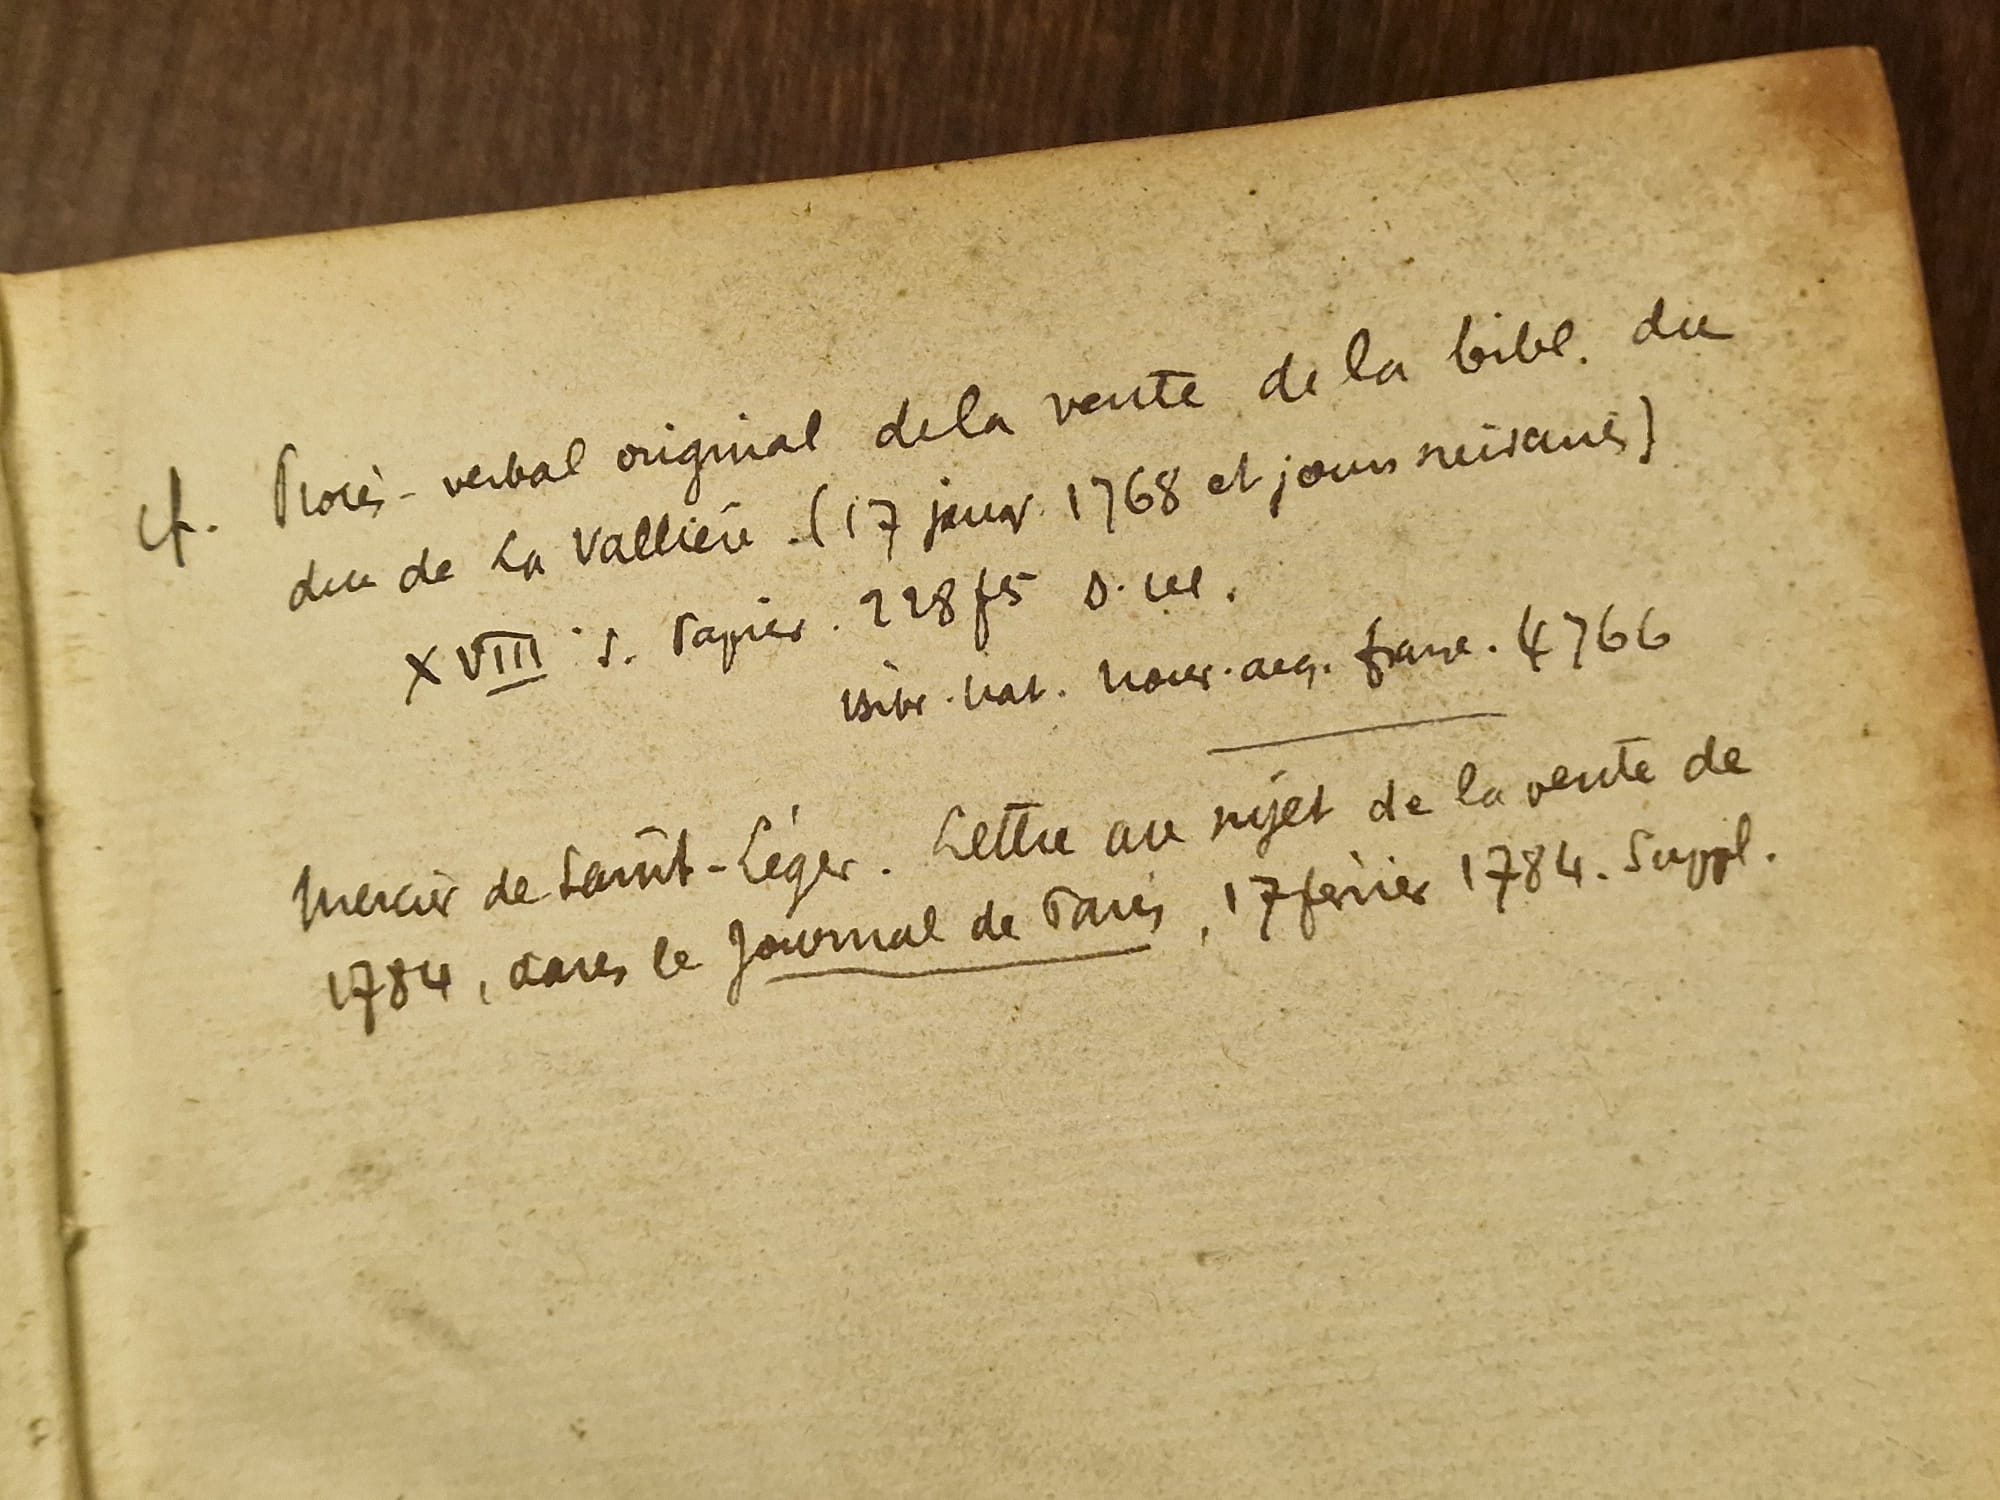 cf. Procès-verbal original de la vente de la bibl. du
duc de La Vallière. (17 janv. 1768 et jours suivans)
XVIII s. Papier. 228 fts D. rel.
Bibl. Nat. Nouv. acq. franç. 4766
Mercier de Saint-Léger. Lettre au sujet de la vente de
1784, dans le Journal de Paris, 17 février 1784. Suppl.